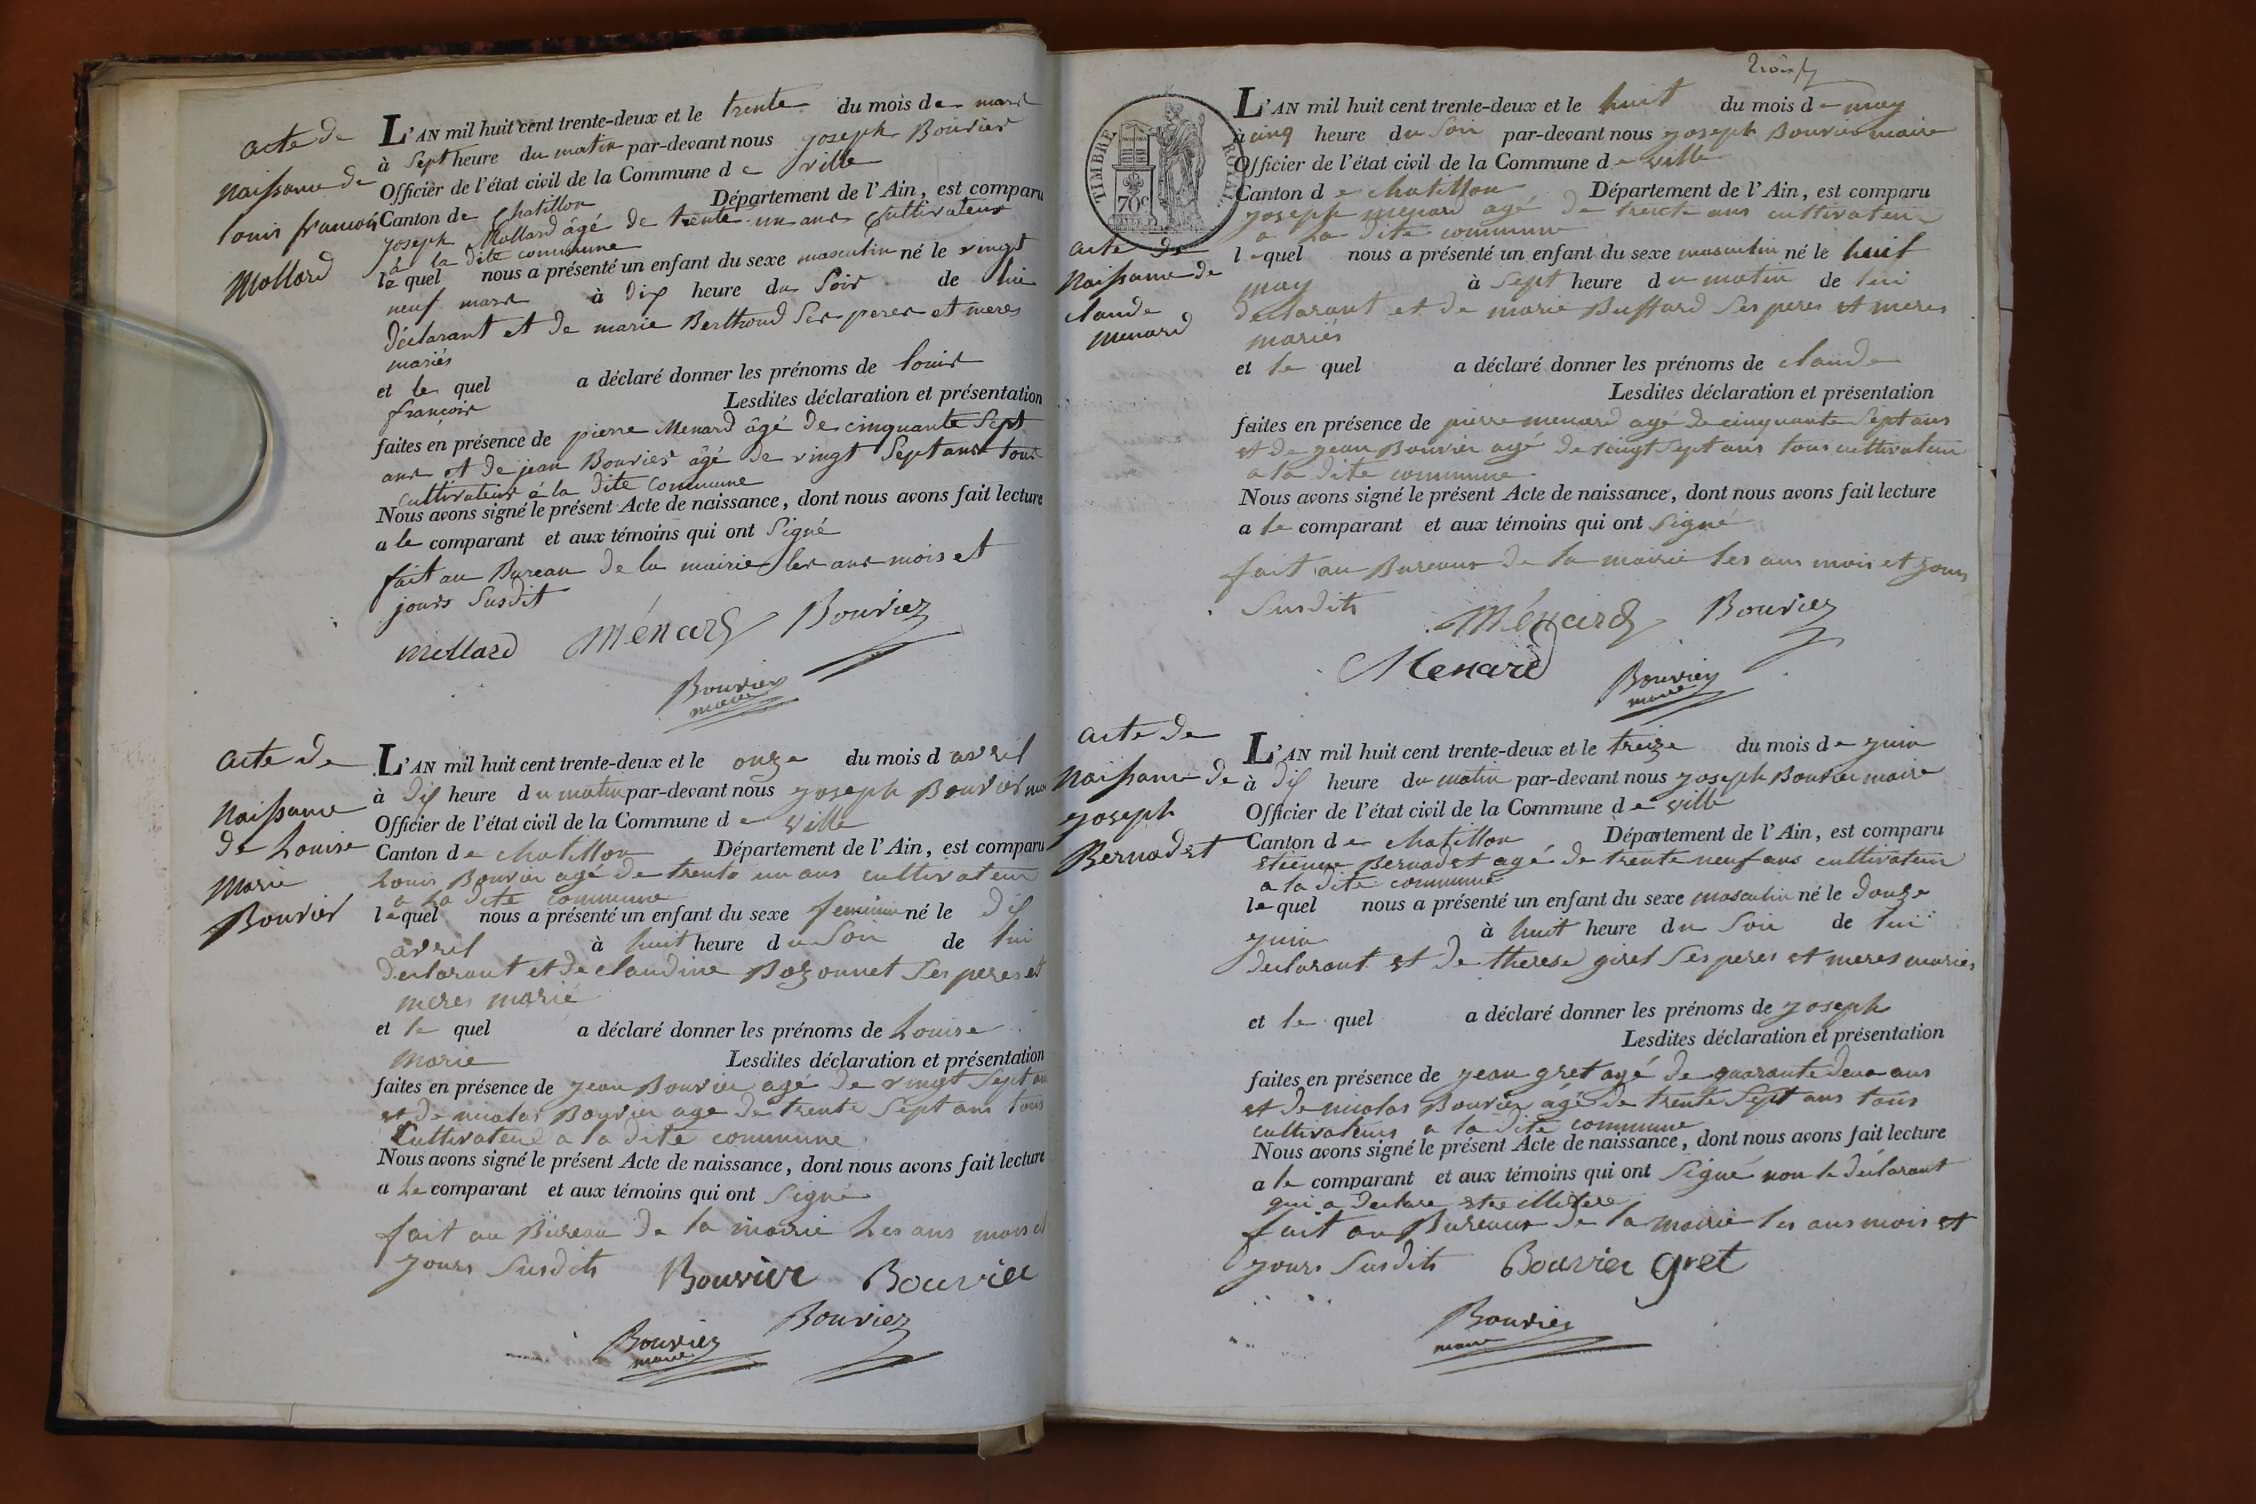 acte de
naissance de
louis francois
Mollard
L'AN mil huit cent trente-deux et le trente du mois de mars
à sept heure du matin par-devant nous joseph Bouvier
Officier de l'état civil de la Commune de ville
Canton de Chatillon Département de l'Ain, est comparu
joseph Mollard âgé de trente un ans Cultivateur
à la dite commune
le quel nous a présenté un enfant du sexe masculin né le vingt
neuf mars à dix heure du soir de lui
déclarant et de marie Berthoud ses peres et meres
mariés
et le quel a déclaré donner les prénoms de louis
françois Lesdites déclaration et présentation
faites en présence de pierre Menard âgé de cinquante sept
ans et de jean Bouvier âgé de vingt sept ans tous
cultivateurs à la dite Commune
Nous avons signé le présent Acte de naissance, dont nous avons fait lecture
a le comparant et aux témoins qui ont signé
fait au Bureau de la mairie les ans mois et
jours susdit
Mollard Ménard Bouvier
Bouvier
maire
acte de
naissance
de Louise
Marie
Bouvier
L'AN mil huit cent trente-deux et le onze du mois d avril
à dix heure du matin par-devant nous joseph Bouvier
Officier de l'état civil de la Commune de ville
Canton de chatillon Département de l'Ain, est comparu
Louis Bouvier agé de trente un ans cultivateur
a la dite commune
le quel nous a présenté un enfant du sexe feminin né le dix
avril à huit heure du soir de lui
declarant et de claudine Bozonnet ses peres et
meres marié
et le quel a déclaré donner les prénoms de Louise
Marie Lesdites déclaration et présentation
faites en présence de jean Bouvier agé de vingt sept ans
et de nicolas Bouvier age de trente sept ans tous
Cultivateur a la dite commune
Nous avons signé le présent Acte de naissance, dont nous avons fait lecture
a le comparant et aux témoins qui ont signé
fait au Bureau de la mairie les ans mois et
jours susdits Bouvier Bouvier
Bouvier Bouvier
maire
TIMBRE ROYAL
70c
acte de
naissance de
claude
menard
L'AN mil huit cent trente-deux et le huit du mois de may
à cinq heure du soir par-devant nous joseph Bouvier maire
Officier de l'état civil de la Commune de ville
Canton de chatillon Département de l'Ain, est comparu
joseph menard agé de trente ans cultivateur
a la dite commune
le quel nous a présenté un enfant du sexe masculin né le huit
may à sept heure du matin de lui
declarant et de marie Buffard ses peres et meres
mariés
et le quel a déclaré donner les prénoms de claude
Lesdites déclaration et présentation
faites en présence de pierre menard agé de cinquante sept ans
et de jean Bouvier agé de vingt sept ans tous cultivateur
a la dite commune
Nous avons signé le présent Acte de naissance, dont nous avons fait lecture
a le comparant et aux témoins qui ont signé
fait au Bureaux de la mairie les ans mois et jours
susdits Ménard Bouvier
Menard Bouvier
maire
acte de
naissance de
joseph
Bernadet
L'AN mil huit cent trente-deux et le treize du mois de juin
à dix heure du matin par-devant nous joseph Bouvier maire
Officier de l'état civil de la Commune de ville
Canton de chatillon Département de l'Ain, est comparu
etienne Bernadet agé de trente neuf ans cultivateur
a la dite commune
le quel nous a présenté un enfant du sexe masculin né le douze
juin à huit heure du soir de lui
declarant et de therese giret ses peres et meres mariés
et le quel a déclaré donner les prénoms de joseph
Lesdites déclaration et présentation
faites en présence de jean gret agé de quarante deux ans
et de nicolas Bouvier agé de trente sept ans tous
cultivateurs a la dite commune
Nous avons signé le présent Acte de naissance, dont nous avons fait lecture
a le comparant et aux témoins qui ont signé non le declarant
qui a declare etre illitere
fait au Bureaux de la mairie les ans mois et
jours susdits Bouvier gret
Bouvier
maire